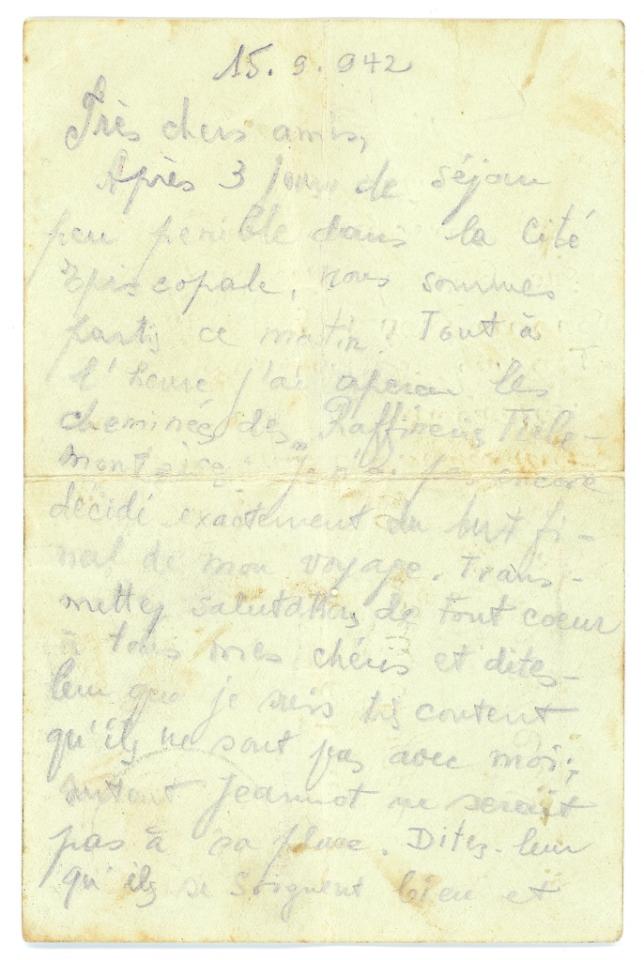 15.9.942
Très chers amis,
Après 3 jours de séjour
peu penible dans la Cité
Episcopale, nous sommes
partis ce matin. Tout à
l'heure j'ai aperçu les
cheminées des Raffineries Tirle-
montoise. Je n'ai pas encore
décidé exactement du but fi-
nal de mon voyage. Trans-
mettez salutations de tout coeur
à tous mes chéris et dites-
leur que je suis très content
qu'ils ne sont pas avec moi;
surtout Jeannot ne serait
pas à sa place. Dites-leur
qu'ils se soignent bien et